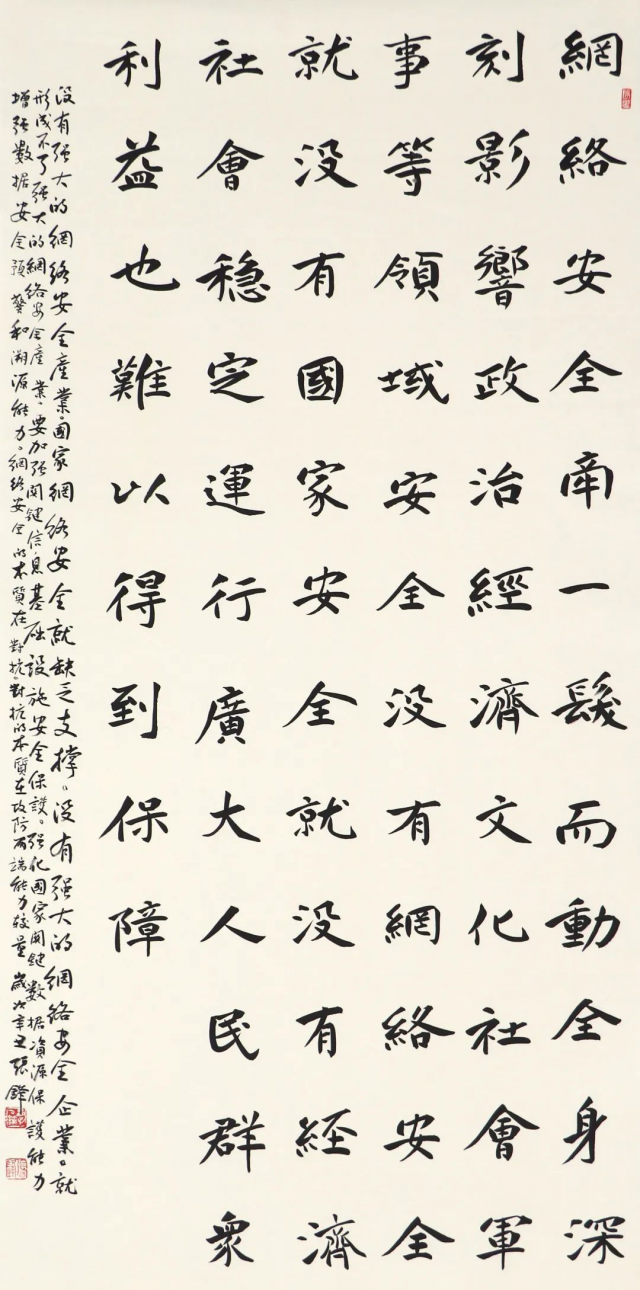 網絡安全牽一髮而動全身深
刻影響政治經濟文化社會軍
事等領域安全没有網絡安全
就没有國家安全就没有經濟
社會稳定運行廣大人民群衆
利益也難以得到保障
没有强大的網絡安全產業國家網絡安全就缺乏支撑。没有强大的網絡安全企業。就
形成不了强大的網絡安全產業。要加强関鍵信息基础設施安全保護。强化國家関鍵數据資源保護能力
增强數据安全預警和溯源能力。網絡安全的本質在對抗。對抗的本質在攻防兩端能力較量 歲次辛丑張